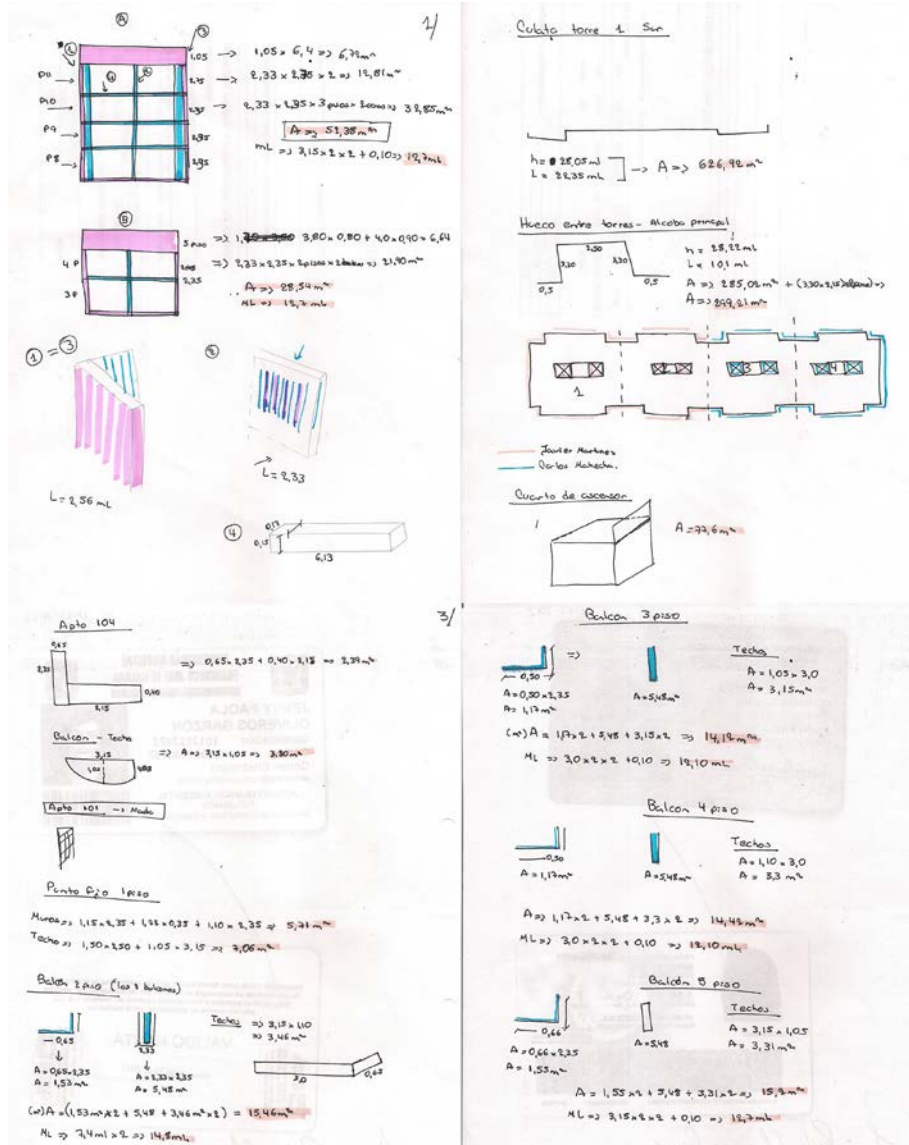 A
2/
3
2
1,05
1,05 x 6,4 => 6,72 m²
P11
2,75
2,33 x 2,35 x 2 => 12,81 m²
P10
2,35
2,33 x 2,35 x 3 pisos x 2 => 32,85 m²
P9
2,35
A => 52,38 m²
P8
2,35
mL => 3,15 x 2 x 2 + 0,10 => 12,7 mL
B
5 piso
=> 3,80 x 0,80 + 4,0 x 0,90 = 6,64
4 P
2,35
=> 2,33 x 2,35 x 2 pisos x 2 => 21,90 m²
3 P
A => 28,54 m²
ML => 12,7 mL
1 = 3
2
L = 2,56 mL
L = 2,33
4
0,17
0,15
6,13
Culata torre 1 Sur
h = 28,05 ml
L = 22,35 mL
-> A => 626,92 m²
Hueco entre torres - Alcoba principal
2,50
3,30
3,30
0,5
0,5
h = 28,22 mL
L = 10,1 mL
A => 285,02 m² + (3,30 x 2,15) =>
A => 299,21 m²
1
2
3
4
Javier Martinez
Carlos Mahecha.
Cuarto de ascensor
A = 77,6 m²
3/
Apto 104
0,65
2,35
0,40
2,15
=> 0,65 x 2,35 + 0,40 x 2,15 => 2,39 m²
Balcon - Techo
3,15
1,05
=> A => 3,15 x 1,05 => 3,30 m²
Apto 101 -> Nada
Punto fijo 1 piso
Muros => 1,15 x 2,35 + 1,22 x 0,35 + 1,10 x 2,35 => 5,71 m²
Techo => 1,50 x 2,50 + 1,05 x 3,15 => 7,06 m²
Balcón 2 piso (los 2 balcones)
0,65
2,33
Techos => 3,15 x 1,10
=> 3,46 m²
3,0
0,65
A = 0,65 x 2,35
A = 1,53 m²
A = 2,33 x 2,35
A = 5,48 m²
(m²) A = (1,53 m² x 2 + 5,48 + 3,46 m² x 2) = 15,46 m²
ML => 7,4 ml x 2 => 14,8 mL
Balcon 3 piso
=>
0,50
A = 0,50 x 2,35
A = 1,17 m²
A = 5,48 m²
Techos
A = 1,05 x 3,0
A = 3,15 m²
(m²) A = 1,17 x 2 + 5,48 + 3,15 x 2 => 14,12 m²
ML => 3,0 x 2 x 2 + 0,10 => 12,10 mL
Balcon 4 piso
0,50
A = 1,17 m²
A = 5,48 m²
Techos
A = 1,10 x 3,0
A = 3,3 m²
A => 1,17 x 2 + 5,48 + 3,3 x 2 => 14,42 m²
ML => 3,0 x 2 x 2 + 0,10 => 12,10 mL
Balcón 5 piso
0,66
A = 0,66 x 2,35
A = 1,55 m²
A = 5,48
Techos
A = 3,15 x 1,05
A = 3,31 m²
A = 1,55 x 2 + 5,48 + 3,31 x 2 => 15,2 m²
ML => 3,15 x 2 x 2 + 0,10 => 12,7 mL